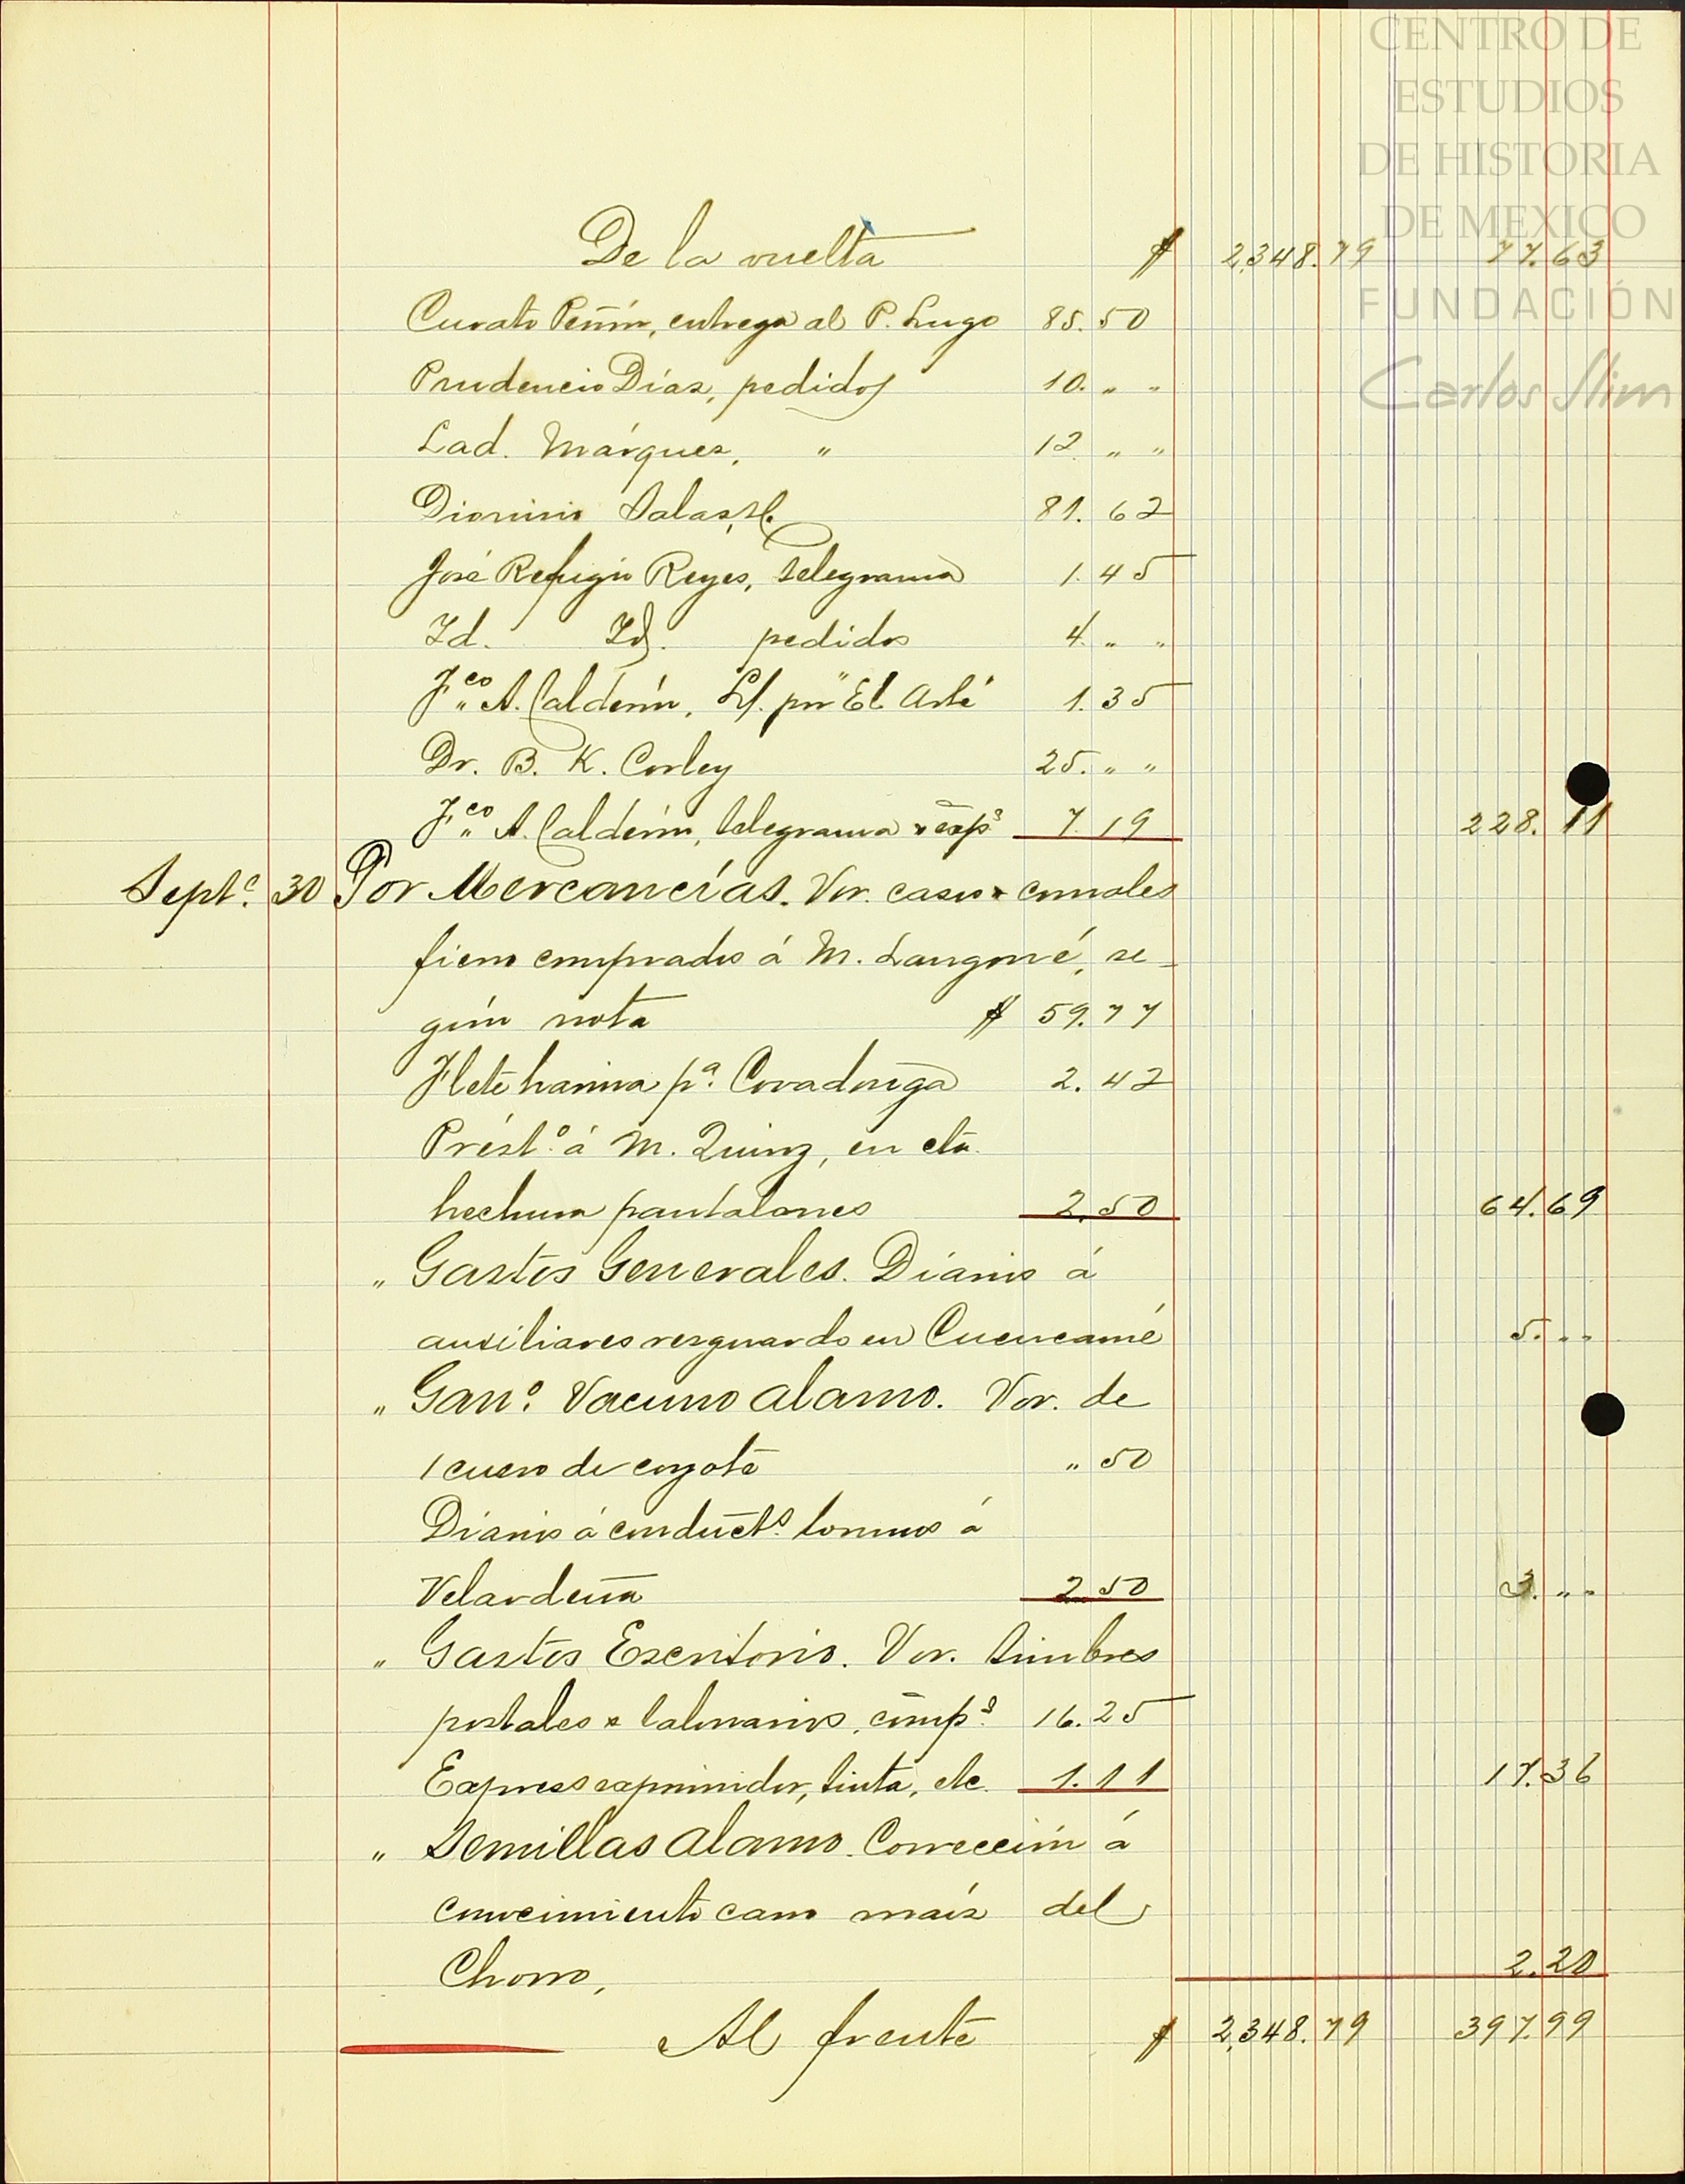 CENTRO DE
ESTUDIOS
DE HISTORIA
DE MEXICO
FUNDACIÓN
Carlos Slim
De la vuelta $ 2,348.79 77.63
Curato Peñón, entrega al P. Lugo 85.50
Prudencio Díaz, pedidos 10. " "
Lad. Márquez, " 12 " "
Dionisio Salas, 81.62
José Refugio Reyes, telegrama 1.45
Id. Id. pedidos 4. " "
F.co A. Calderón, L/. por "El Arte" 1.35
Dr. B. K. Corley 25. " "
F.co A. Calderón, telegrama y exp.s 7.19 228.11
Sept.e 30 Por Mercancías. Vor. casos y comales
fierro comprados á M. Langoné, se-
gún nota $ 59.77
Flete harina p.a Covadonga 2.42
Prést.o á M. Quinz, en cta.
hechura pantalones 2.50 64.69
" Gastos Generales. Diarios á
auxiliares resguardo en Cuencamé 5. " "
" Gan.o Vacuno Alamo. Vor. de
1 cuero de coyote " 50
Diarios á conduct.s toruños á
Velardeña 2.50 3. " "
" Gastos Escritorio. Vor. timbres
postales y talonarios, comp.s 16.25
Express exprimidor, tinta, etc. 1.11 17.36
" Semillas Alamo. Corrección á
conocimiento carro maíz del
Chorro, 2.20
Al frente $ 2,348.79 397.99